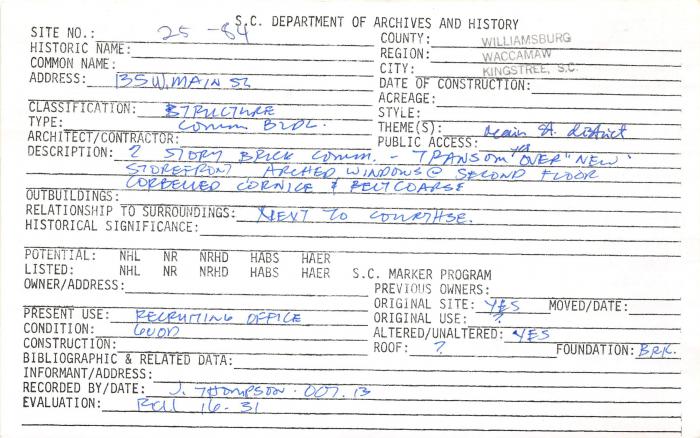 S.C. DEPARTMENT OF ARCHIVES AND HISTORY
SITE NO.: 25-84
COUNTY: WILLIAMSBURG
HISTORIC NAME:
REGION: WACCAMAW
COMMON NAME:
CITY: KINGSTREE, S.C.
ADDRESS: 135 W. MAIN ST.
DATE OF CONSTRUCTION:
ACREAGE:
CLASSIFICATION: STRUCTURE
STYLE:
TYPE: COMM BLDL.
THEME(S): Main St. district
ARCHITECT/CONTRACTOR:
PUBLIC ACCESS: yes
DESCRIPTION: 2 STORY BRICK COMM. - TRANSOM OVER "NEW"
STOREFRONT ARCHED WINDOWS @ SECOND FLOOR
CORBELLED CORNICE & BELTCOARSE
OUTBUILDINGS:
RELATIONSHIP TO SURROUNDINGS: NEXT TO COURTHSE.
HISTORICAL SIGNIFICANCE:
POTENTIAL: NHL NR NRHD HABS HAER
LISTED: NHL NR NRHD HABS HAER S.C. MARKER PROGRAM
OWNER/ADDRESS:
PREVIOUS OWNERS:
ORIGINAL SITE: YES MOVED/DATE:
PRESENT USE: RECRUITING OFFICE
ORIGINAL USE: ?
CONDITION: GOOD
ALTERED/UNALTERED: YES
CONSTRUCTION:
ROOF: ? FOUNDATION: BRK.
BIBLIOGRAPHIC & RELATED DATA:
INFORMANT/ADDRESS:
RECORDED BY/DATE: J. THOMPSON. OCT. 13
EVALUATION: Roll 16-31